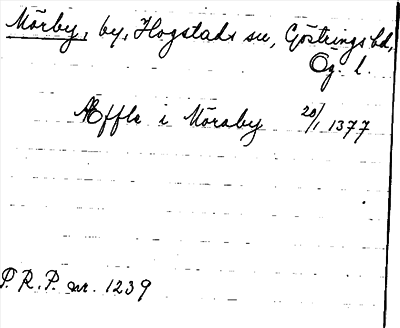 Mörby, by, Hogstads sn, Göstrings hd,
Ög. l.
Æffle i Møraby 20/1 1377
P.R.P. nr. 1239